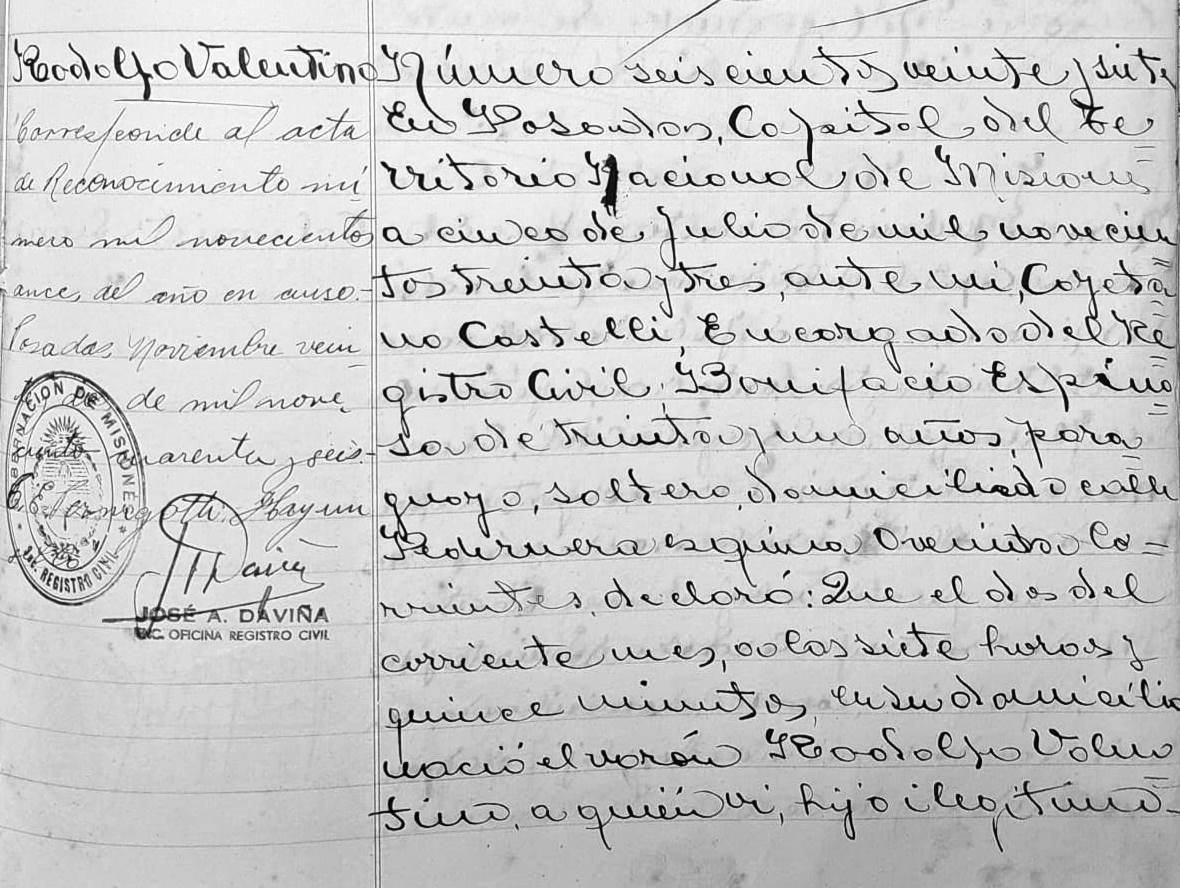 Rodolfo Valentino
Corresponde al acta
de Reconocimiento nú
mero mil novecientos
once, del año en curso.-
Posadas, Noviembre vein
de mil nove
cientos cuarenta y seis.-
GOBERNACION DE MISIONES
REGISTRO CIVIL
JOSÉ A. DAVIÑA
OFICINA REGISTRO CIVIL
Número seiscientos veinte y siete
En Posadas, Capital del Te=
rritorio Nacional de Misiones
a cinco de Julio de mil novecien
tos treinta y tres, ante mi, Cayeta=
no Castelli, Encargado del Re=
gistro Civil, Bonifacio Espino=
sa de treinta y un años, para=
guayo, soltero, domiciliado calle
Pedernera esquina Oveinta Co=
rrientes, declaró: Que el dos del
corriente mes, a las siete horas y
quince minutos, en su domicilio
nació el varón Rodolfo Valen=
tino, a quién vi, hijo ilegitimo-